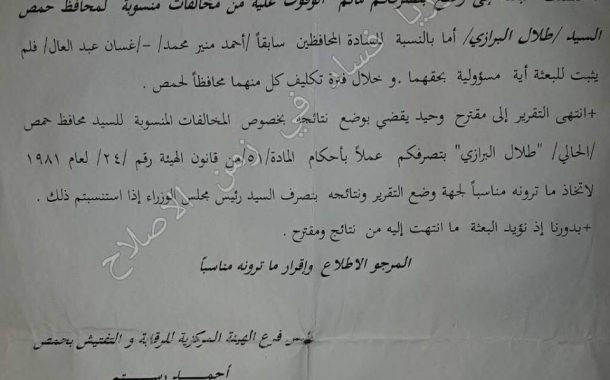 إلى وضع بتصرفكم ماتم الوقوف عليه من مخالفات منسوبة لمحافظ حمص
السيد /طلال البرازي/ أما بالنسبة للسادة المحافظين سابقاً /أحمد منير محمد/ –/غسان عبد العال/ فلم
يثبت للبعثة أية مسؤولية بحقهما .و خلال فترة تكليف كل منهما محافظاً لحمص .
+انتهى التقرير إلى مقترح وحيد يقضي بوضع نتائجه بخصوص المخالفات المنسوبة للسيد محافظ حمص
/الحالي/ "طلال البرازي" بتصرفكم عملاً بأحكام المادة/٥١/من قانون الهيئة رقم /٢٤/ لعام ١٩٨١
لاتخاذ ما ترونه مناسباً لجهة وضع التقرير ونتائجه بتصرف السيد رئيس مجلس الوزراء إذا استنسبتم ذلك .
+بدورنا إذ نؤيد البعثة ما انتهت إليه من نتائج ومقترح .
المرجو الاطلاع وإقرار ما ترونه مناسباً
رئيس فرع الهيئة المركزية للرقابة و التفتيش بحمص
أحمد
فساد في زمن الاصلاح